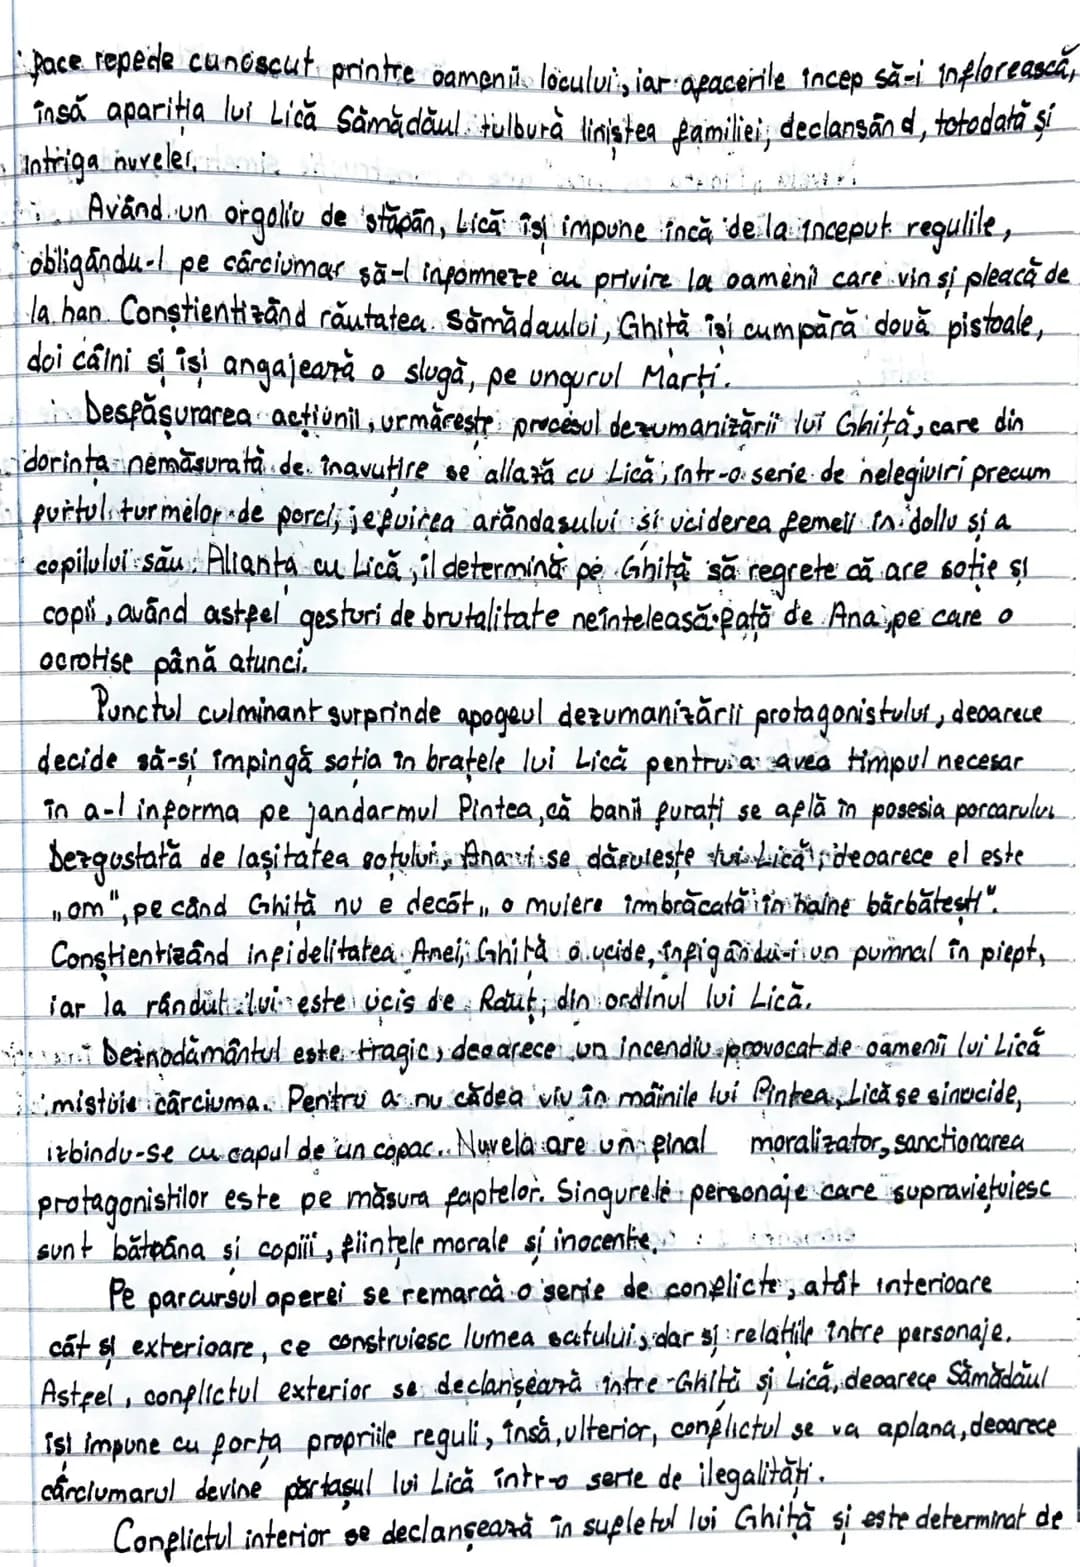 face repede cunoscut printre oamenii locului, iar afacerile încep să-i înflorească,
însă apariția lui Lică Sămădăul tulbură liniștea familiei, declansând, totodată și
intriga nuvelei.
Având un orgoliu de stăpân, Lică își impune încă de la început regulile,
obligându-l pe cârciumar să-l informeze cu privire la oamenii care vin și pleacă de
la han. Conștientizând răutatea Sămădaului, Ghiță își cumpără două pistoale,
doi câini și își angajează o slugă, pe ungurul Marți.
Desfășurarea acțiunii, urmărește procesul dezumanizării lui Ghiță, care din
dorința nemăsurată de înavuțire se allază cu Lică, într-o serie de nelegiuiri precum
furtul turmelor de porci, jefuirea arândașului și uciderea femeii în doliu și a
copilului său. Alianța cu Lică, îl determină pe Ghiță să regrete că are soție și
copii, având astfel gesturi de brutalitate neînțeleasă față de Ana, pe care o
ocrotise până atunci.
Punctul culminant surprinde apogeul dezumanizării protagonistului, deoarece
decide să-și împingă soția în brațele lui Lică pentru a avea timpul necesar
în a-l informa pe jandarmul Pintea, că banii furați se află în posesia porcarului
Dezgustată de lașitatea soțului, Ana i se dăruiește lui Lică, deoarece el este
„om", pe când Ghiță nu e decât „o muiere îmbrăcată în haine bărbătești".
Conștientizând infidelitatea Anei, Ghiță o ucide, înfigându-i un pumnal în piept,
iar la rândul lui este ucis de Răuț, din ordinul lui Lică.
Deznodământul este tragic, deoarece un incendiu provocat de oamenii lui Lică
mistuie cârciuma. Pentru a nu cădea viu în mâinile lui Pintea, Lică se sinucide,
izbindu-se cu capul de un copac.. Nuvela are un final moralizator, sancționarea
protagoniștilor este pe măsura faptelor. Singurele personaje care supraviețuiesc
sunt bătrâna și copiii, ființele morale și inocente.
Pe parcursul operei se remarcă o serie de conflicte, atât interioare
cât și exterioare, ce construiesc lumea satului, dar și relațiile între personaje.
Astfel, conflictul exterior se declanșează între Ghiță și Lică, deoarece Sămădăul
își impune cu forța propriile reguli, însă, ulterior, conflictul se va aplana, deoarece
cârciumarul devine părtașul lui Lică într-o serie de ilegalități.
Conflictul interior se declanșează în sufletul lui Ghiță și este determinat de